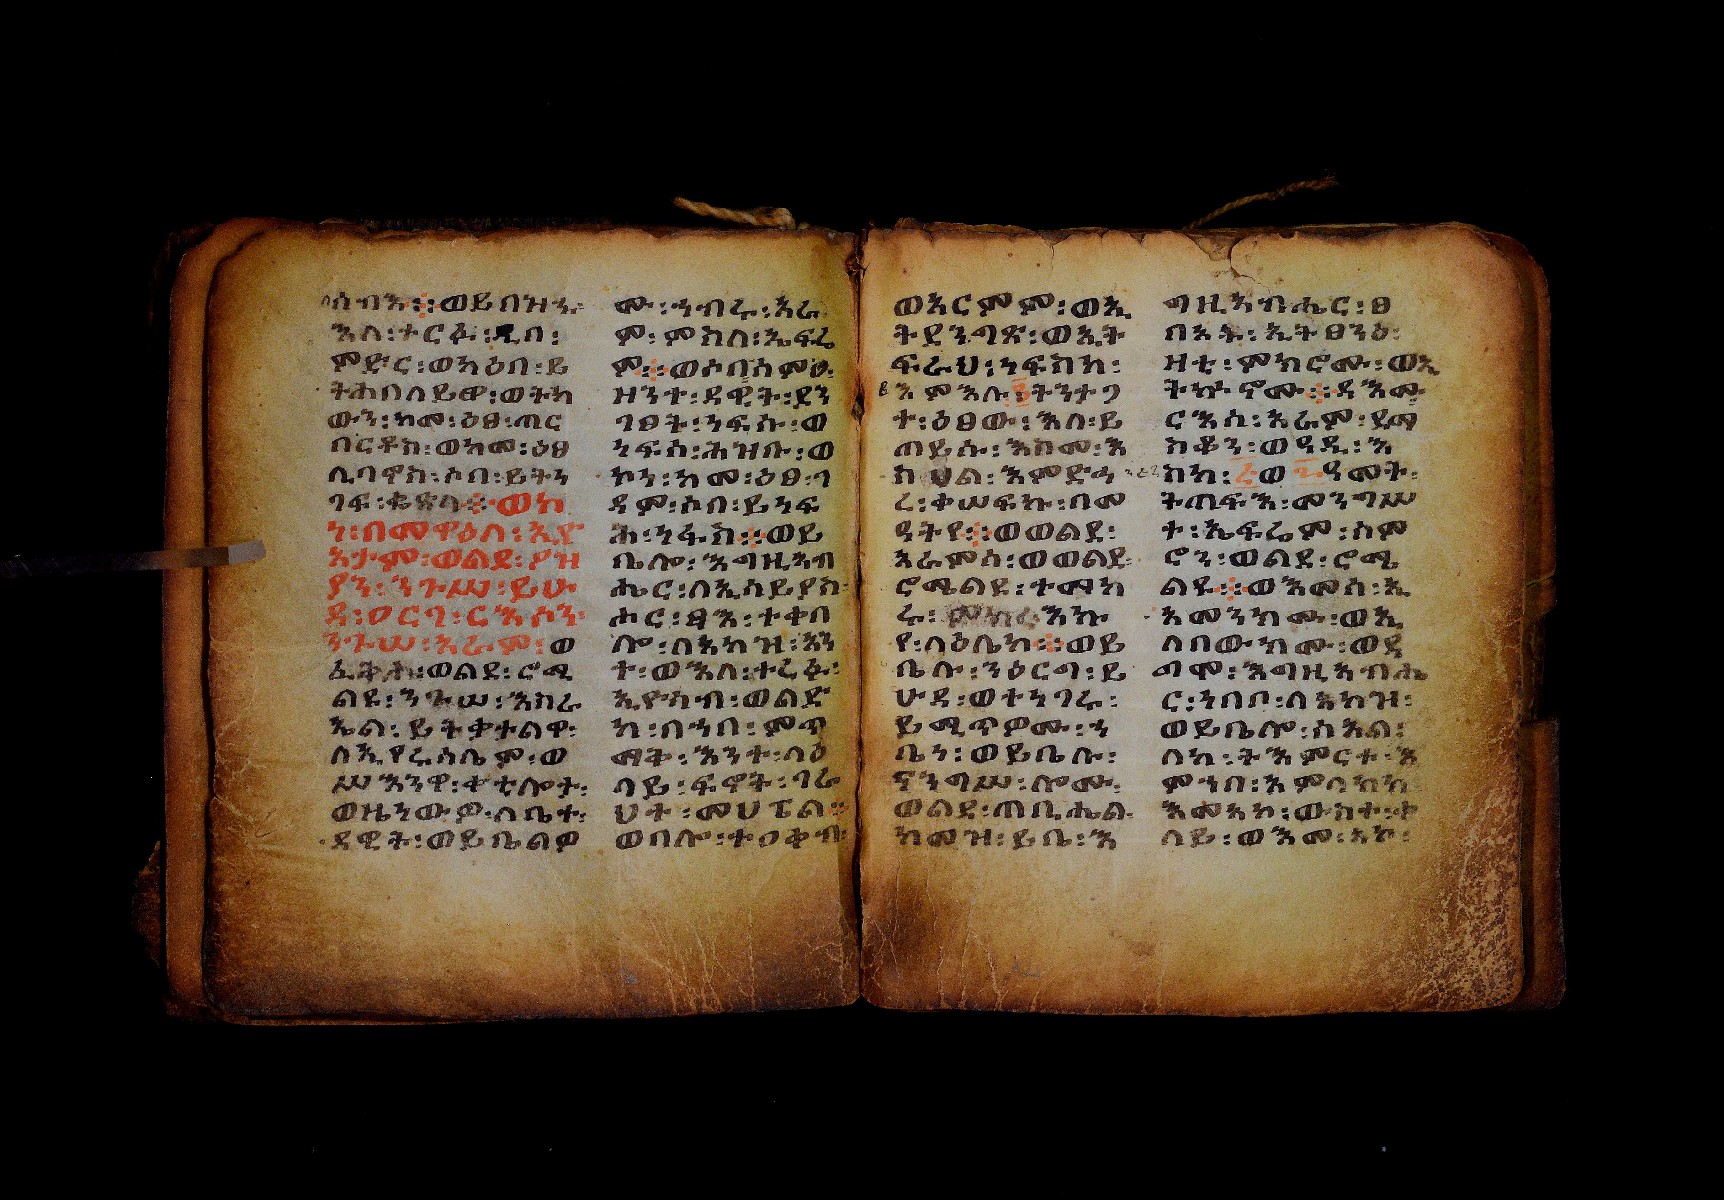 ሰብእ፨ወይበዝኁ፡
እለ፡ተርፉ፡ዲበ፡
ምድር፡ወካዕበ፡ይ
ትሐበለይዋ፡ወትከ
ውን፡ከመ፡ዕፀ፡ጠር
በርቶስ፡ወከመ፡ዕፀ
ሊባኖስ፡ሶበ፡ይትነ
ገፍ፡ቈጽላ፨ወኮ
ነ፡በመዋዕለ፡ኢዮ
አታም፡ወልደ፡ዖዝ
ያን፡ንጉሠ፡ይሁ
ዳ፡ዐርገ፡ርእሶን፡
ንጉሠ፡አራም፡ወ
ፈቅሐ፡ወልደ፡ሮሜ
ልዩ፡ንጉሠ፡እስራ
ኤል፡ይትቃተልዋ፡
ለኢየሩሳሌም፡ወ
ሥእንዋ፡ቀቲሎት፡
ወዜነውዎ፡ለቤተ፡
ዳዊት፡ወይቤልዎ
ሙ፡ኀብሩ፡አራ
ም፡ምስለ፡ኤፍሬ
ም፨ወሶበ፡ሰምዐ፡
ዘንተ፡ዳዊት፡ደን
ገፀት፡ነፍሱ፡ወ
ነፍሰ፡ሕዝቡ፡ወ
ኮነ፡ከመ፡ዕፀ፡ገ
ዳም፡ሶበ፡ይነፍ
ሖ፡ነፋስ፨ወይ
ቤሎ፡እግዚአብ
ሔር፡ለኢሳይያስ፡
ሖር፡ፃእ፡ተቀበ
ሎ፡ለአካዝ፡አን
ተ፡ወእለ፡ተረፉ፡
ኢያሱብ፡ወልድ
ከ፡በኀበ፡ምጥ
ማት፡እንተ፡ላዕ
ላይ፡ፍኖት፡ገራ
ህተ፡መሀፔል፡
ወበሎ፡ተዐቀብ፡
ወአርምም፡ወኢ
ትደንግጽ፡ወኢት
ፍራህ፡ነፍስከ፡
እምእሉ፡፪ትንታገ
ተ፡ዕፀው፡እለ፡ይ
ጠይሱ፡እስመ፡እ
ሀል፡እምድኅ
ረ፡ቀሠፍኩ፡በመ
ዓትየ፨ወወልደ፡
አራምሰ፡ወወልደ፡
ሮሜልዩ፡ተማከ
ሩ፡ምክረ፡እኩ
የ፡ላዕሌከ፨ወይ
ቤሉ፡ንዕርግ፡ይ
ሁዳ፡ወተናገሩ፡
ይሚጥዎሙ፡ኀ
ቤነ፡ወይቤሉ፡
ናንግሥ፡ሎሙ፡
ወልደ፡ጠቢሔል፡
ከመዝ፡ይቤ፡እ
ግዚአብሔር፡ፀ
በኦት፡ኢትፀንዕ፡
ዛቲ፡ምክሮሙ፡ወኢ
ትኰኖሙ፨ዳእሙ
ርእሰ፡አራም፡ደማ
ስቆን፡ወዓዲ፡እ
ስከ፡፷ወ፭ዓመት፡
ትጠፍእ፡መንግሥ
ተ፡ኤፍሬም፡ሰም
ሮን፡ወልደ፡ሮሜ
ልዩ፨ወእመሰ፡ኢ
አመንክሙ፡ወኢ
ለበውክሙ፡ወደ
ገሞ፡እግዚአብሔ
ር፡ነቢቦ፡ለአካዝ፡
ወይቤሎ፡ሰአል፡
ለከ፡ትእምርተ፡እ
ምኀበ፡አምላክከ
እመአኮ፡ውስተ፡ቀ
ላይ፡ወእመ፡አኮ፡